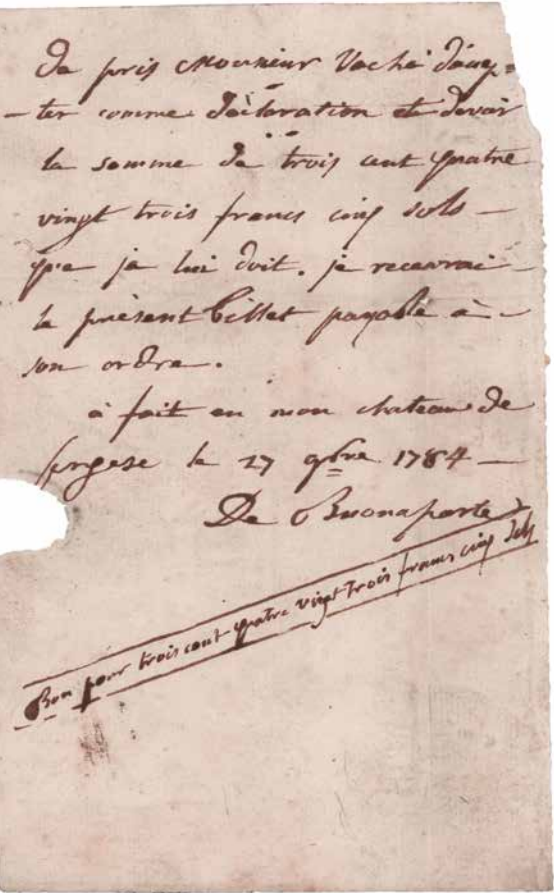 De pris Monsieur Vaché d'acq=
-ter comme déclaration et devoir
la somme de trois cent quatre
vingt trois francs cinq sols -
que je lui doit. je recevrai -
le présent billet payable à -
son ordre.
à fait en mon chateau de
le 27 9bre 1784 -
De Buonaparte
Bon pour trois cent quatre vingt trois francs cinq sols